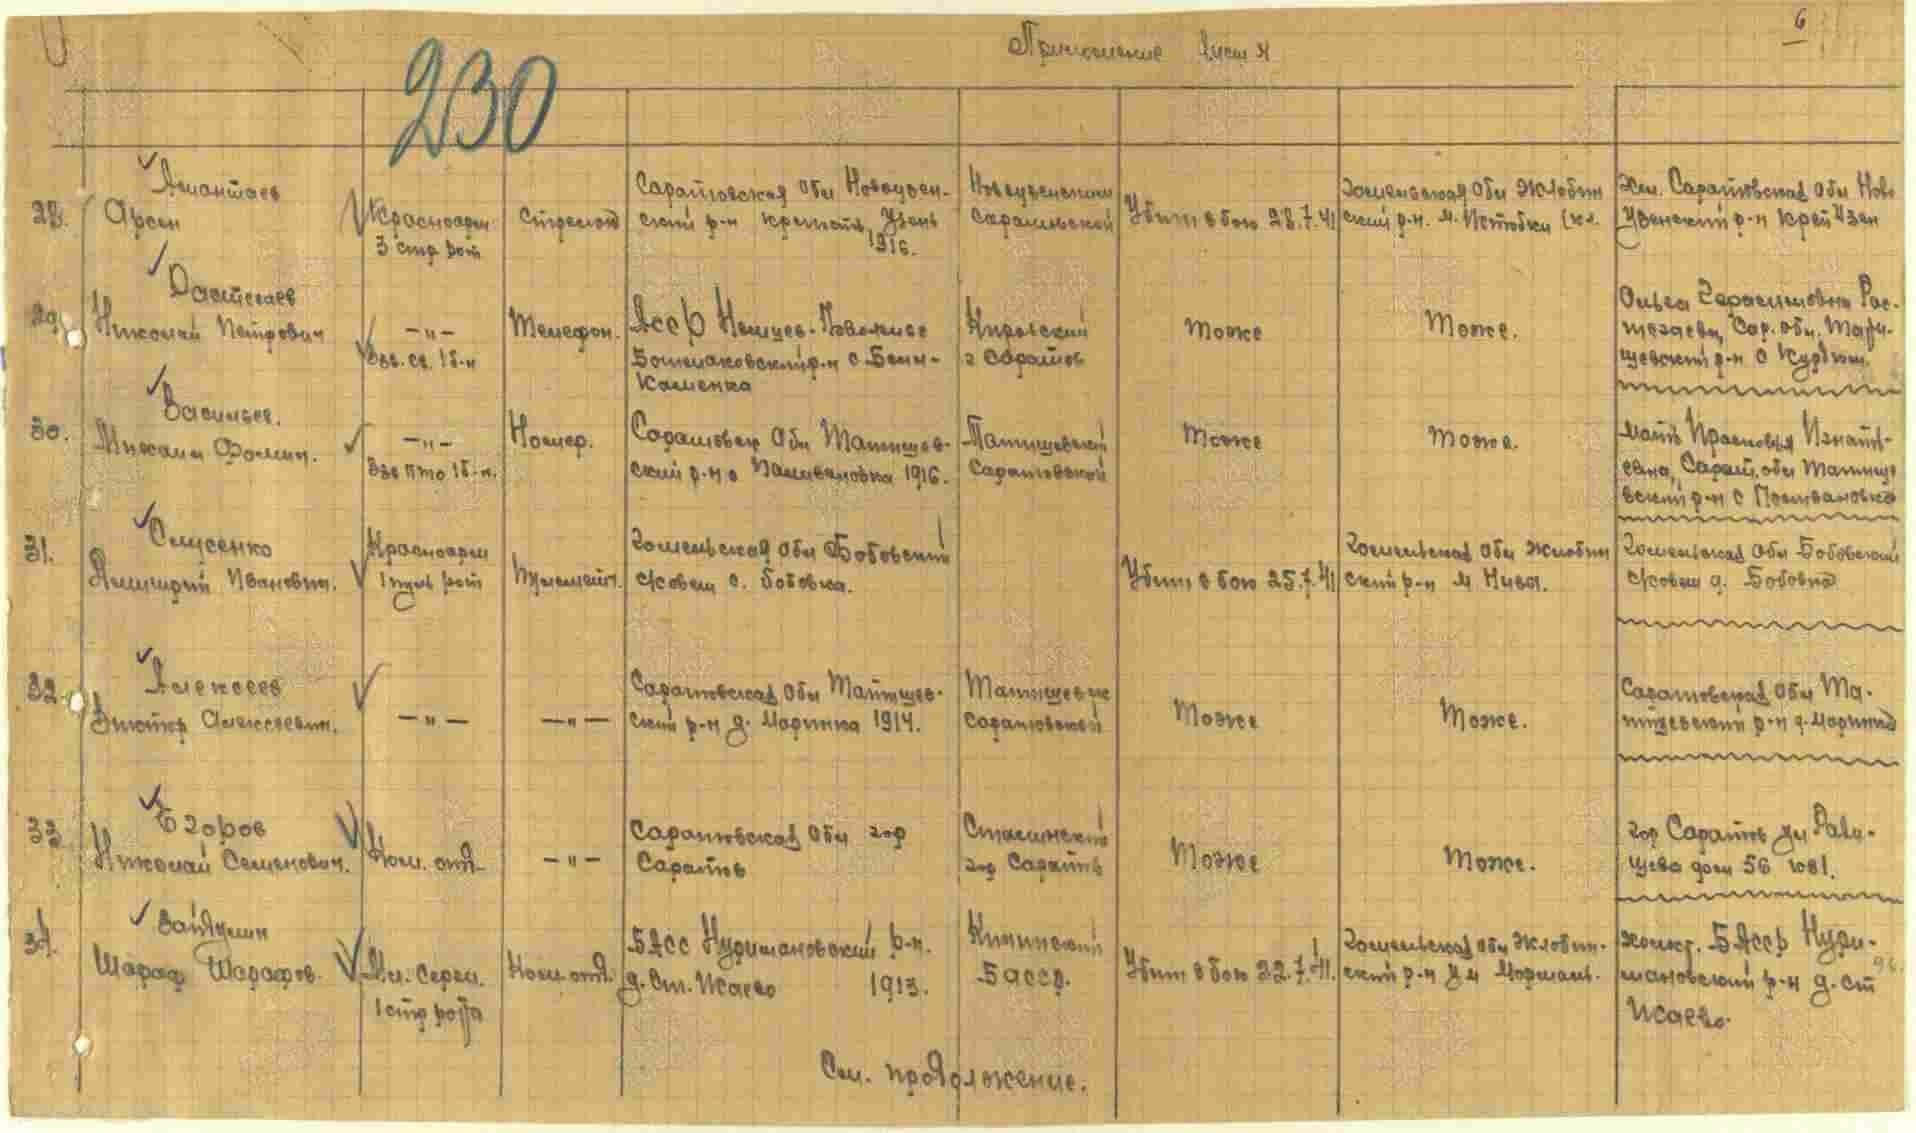 6
230
лист
28. Амантаев Арсен Красноарм 3 стр рот стрелок Саратовская обл Новоузенский р-н Узень 1916. Новоузенским Саратовской Убит в бою 28.7.41 Гомельская обл Жлобинский р-н. м. Саратовская обл Новоузенский р-н Узен
29. Николай Петрович -"- взв. св. 1 б-н Телефон. АССР Немцев-Поволжье р-н с Каменка Кировский г Саратов Тоже Тоже. Ольга Герасимовна Сар. обл.
30. Васильев. Михаил Фомич. -"- взв ПТО 1 б-н. Номер. Саратовск обл Татищевский р-н с 1916. Татищевский Саратовской Тоже Тоже. Мать Прасковья Игнатьевна, Сарат. обл Татищевский р-н с
31. Слусенко Дмитрий Иванович. Красноарм 1 пул рот Пулеметч. Гомельская обл Бобовский с/совет с. Бобовка. Убит в бою 25.7.41 Гомельская обл Жлобинский р-н м Нива. Гомельская обл Бобовский с/совет д. Бобовка
32. Алексеев Виктор Алексеевич. -"- -"- Саратовская обл Татищевский р-н д. Маринка 1914. Саратовской Тоже Тоже. Саратовская обл Татищевский р-н д. Маринка
33 Егоров Николай Семенович. Ком. отд. -"- Саратовская обл гор Саратов Сталинский гор Саратов Тоже Тоже. гор Саратов ул Радищева дом 56
34. Шараф Шарафов. Мл. серж. 1 стр рота Ком. отд. БАСС Нуримановский р-н. д. Ст. Исаево 1913. БАССР. Убит в бою 22.7.41. Гомельская обл Жлобинский р-н холост. БАССР Нуримановский р-н д. ст Исаево.
См. продолжение.